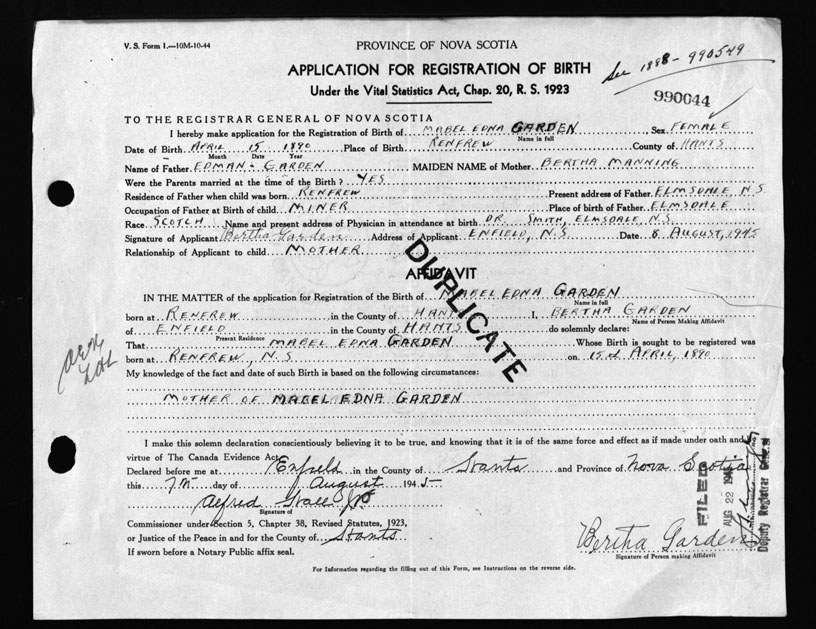 V. S. Form 1.—10M-10-44
PROVINCE OF NOVA SCOTIA
See 1888 - 990549
APPLICATION FOR REGISTRATION OF BIRTH
Under the Vital Statistics Act, Chap. 20, R. S. 1923
990044
TO THE REGISTRAR GENERAL OF NOVA SCOTIA
I hereby make application for the Registration of Birth of MABEL EDNA GARDEN Sex FEMALE
Name in full
Date of Birth APRIL 15 1890 Place of Birth RENFREW County of HANTS
Month Date Year
Name of Father EDMAN - GARDEN MAIDEN NAME of Mother BERTHA MANNING
Were the Parents married at the time of the Birth? YES
Residence of Father when child was born RENFREW Present address of Father ELMSDALE, N.S
Occupation of Father at Birth of child MINER Place of birth of Father ELMSDALE
Race SCOTCH Name and present address of Physician in attendance at birth DR. SMITH, ELMSDALE, N.S.
Signature of Applicant Bertha Garden Address of Applicant ENFIELD, N.S Date 8 AUGUST, 1945
Relationship of Applicant to child MOTHER
DUPLICATE
AFFIDAVIT
IN THE MATTER of the application for Registration of the Birth of MABEL EDNA GARDEN
Name in full
born at RENFREW in the County of HANTS I, BERTHA GARDEN
Name of Person Making Affidavit
of ENFIELD in the County of HANTS do solemnly declare:
Present Residence
That MABEL EDNA GARDEN Whose Birth is sought to be registered was
born at RENFREW, N.S on 15th APRIL 1890
My knowledge of the fact and date of such Birth is based on the following circumstances:
MOTHER OF MABEL EDNA GARDEN
I make this solemn declaration conscientiously believing it to be true, and knowing that it is of the same force and effect as if made under oath and by
virtue of The Canada Evidence Act.
Declared before me at Enfield in the County of Hants and Province of Nova Scotia
this 7th day of August 1945
Alfred
Signature of
Commissioner under Section 5, Chapter 38, Revised Statutes, 1923,
or Justice of the Peace in and for the County of Hants
If sworn before a Notary Public affix seal.
FILED
AUG 22
Deputy Registrar General
Bertha Garden
Signature of Person making Affidavit
For Information regarding the filling out of this Form, see Instructions on the reverse side.